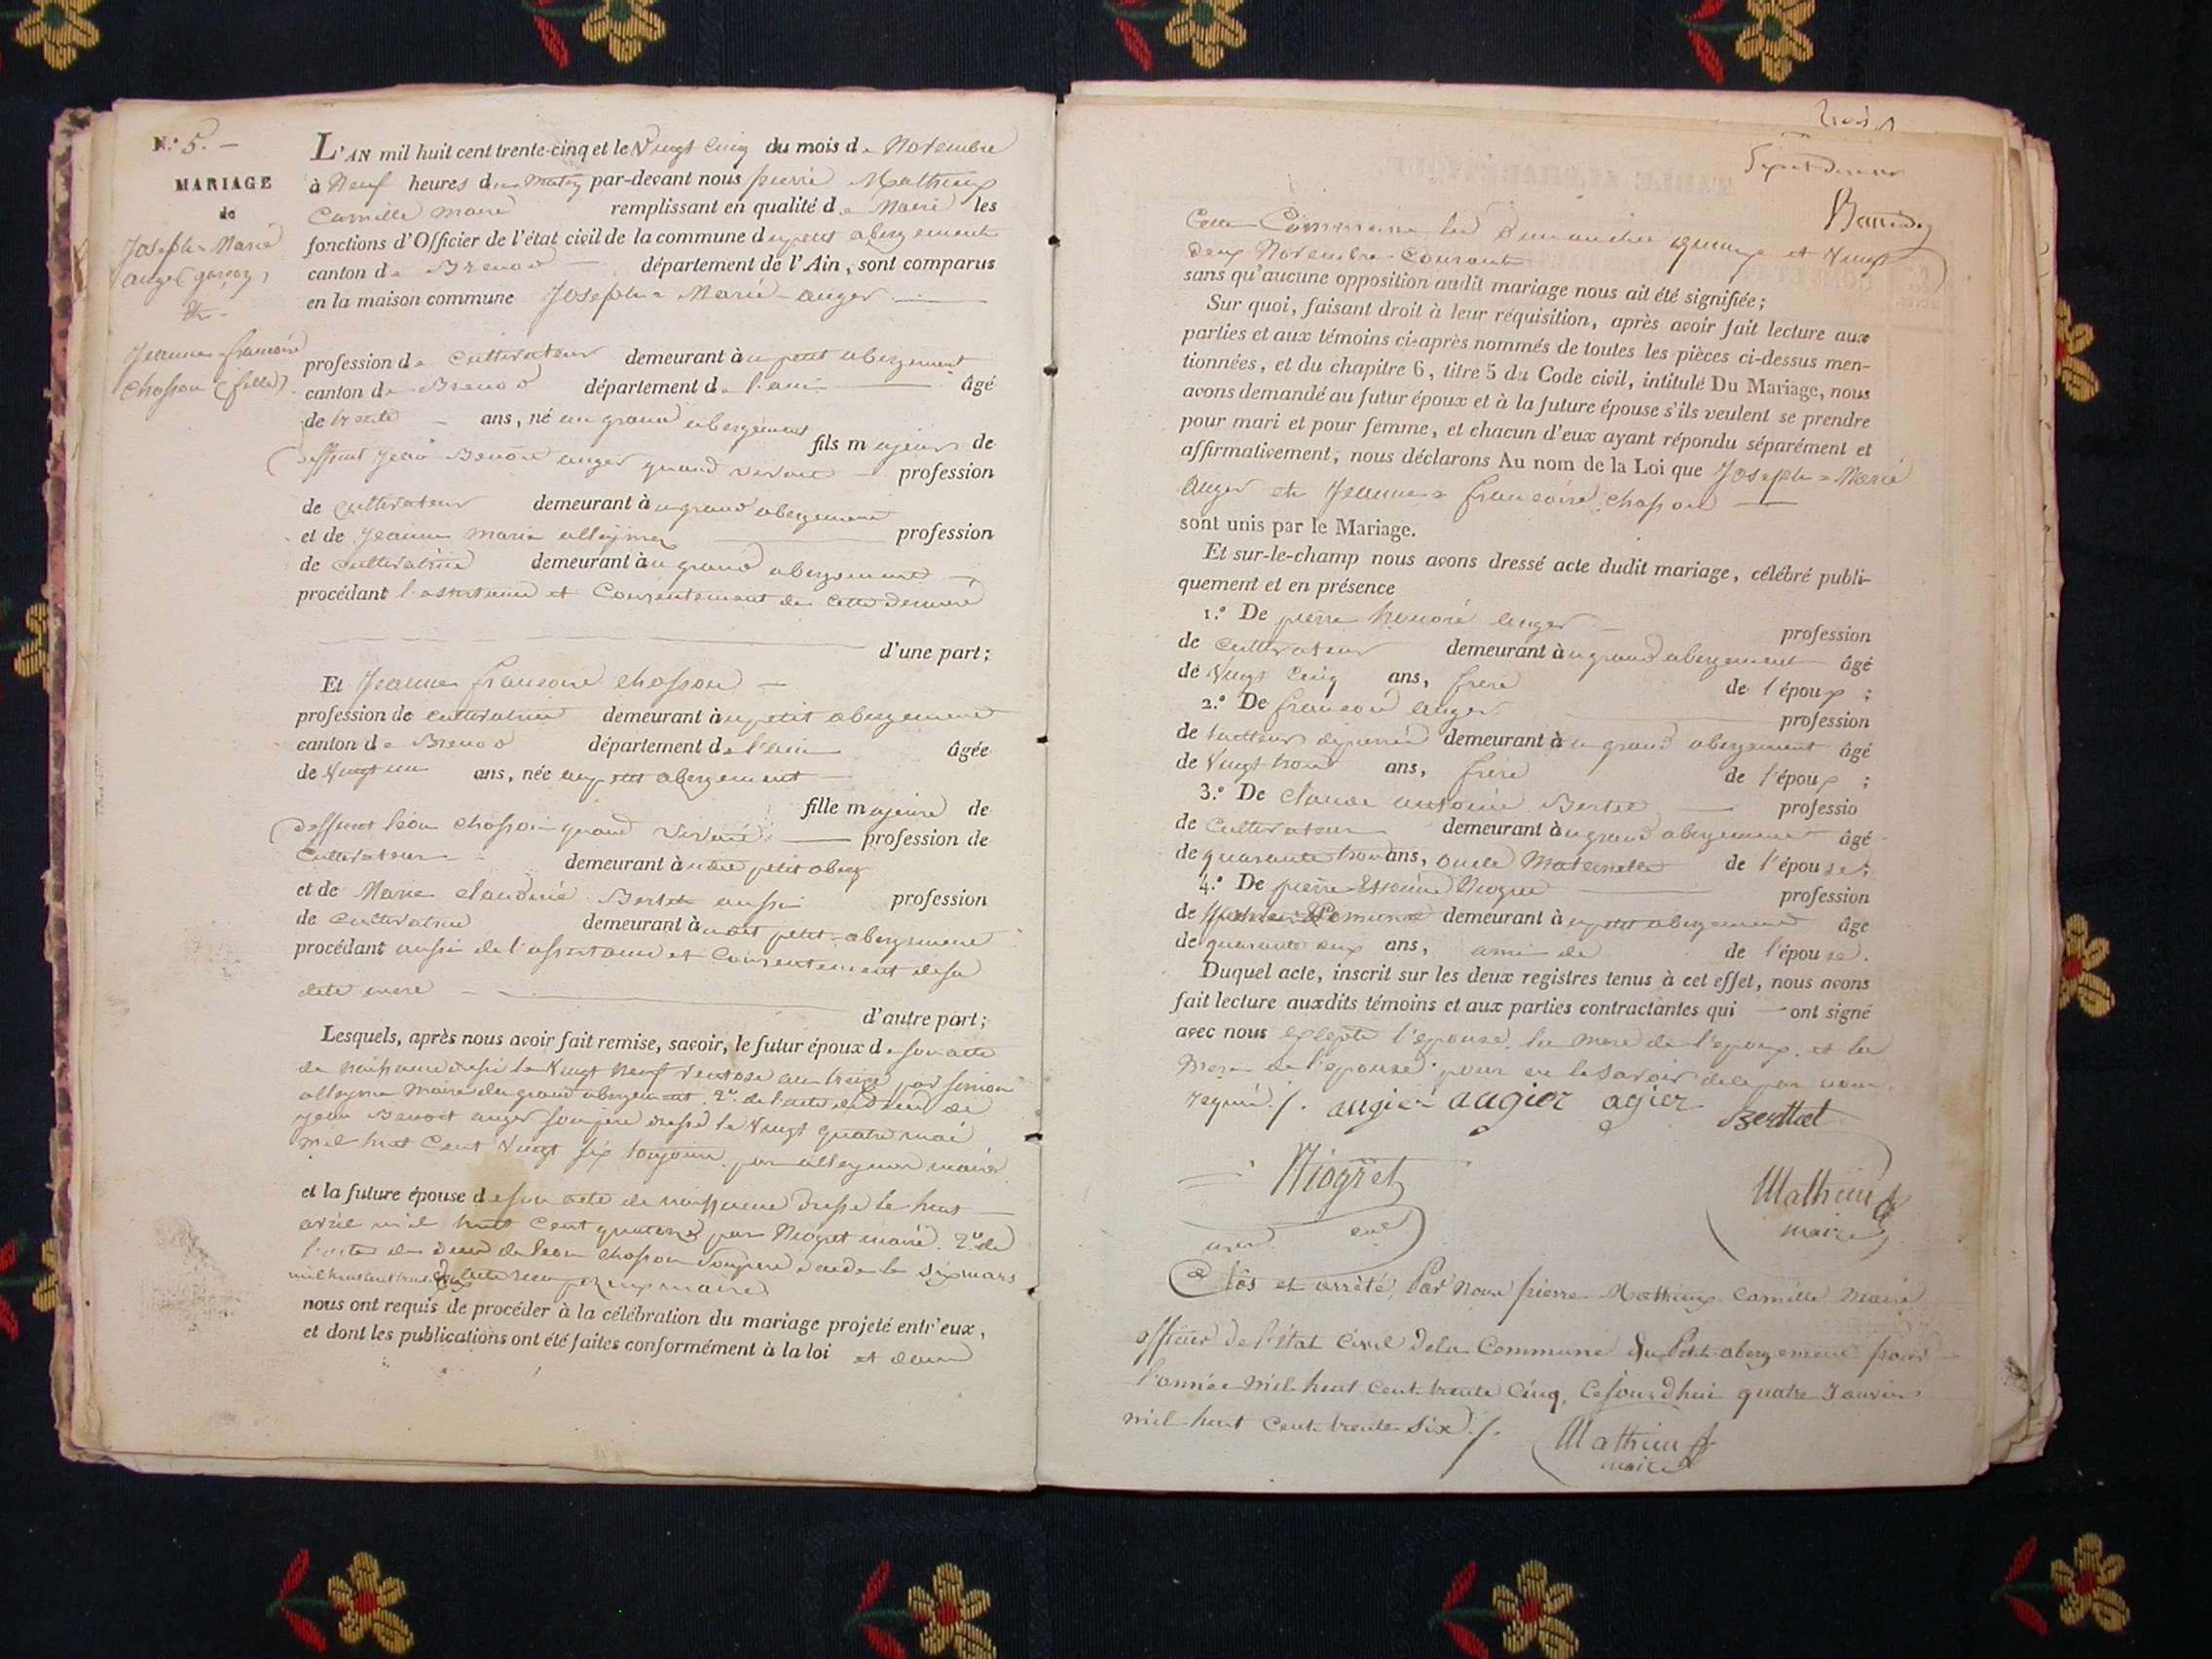 N.º 5. —
MARIAGE
de
Joseph = Marie
auger (garçon)
&
Jeanne françoise
Chosson (fille)
L'AN mil huit cent trente-cinq et le Vingt Cinq du mois de Novembre
à Neuf heures du matin par-devant nous pierre Mathieux
Camille maire remplissant en qualité de Maire les
fonctions d'Officier de l'état civil de la commune du petit abergement
canton de Brenod — département de l'Ain, sont comparus
en la maison commune Joseph = Marie = auger —
profession de Cultivateur demeurant à u petit abergement
canton de Brenod département de l'ain — âgé
de trente — ans, né au grand abergement
fils majeur de
deffunt Jean Benoit auger quand vivait — profession
de Cultivateur demeurant à u grand abergement
et de Jeanne Marie alleyme — profession
de Cultivatrice demeurant à u grand abergement —
procédant l'assistance et Consentement de cette derniere
d'une part;
Et Jeanne françoise chosson —
profession de cultivatrice demeurant à u petit abergement
canton de Brenod département de l'ain âgée
de Vingt un ans, née au petit abergement —
fille majeure de
deffunt léon chosson quand vivait — profession de
Cultivateur demeurant à u dit petit aberg
et de Marie claudine Bertet aussi profession
de Cultivatrice demeurant à u dit petit abergement
procédant aussi de l'assistance et Consentement de sa
dite mere —
d'autre part;
Lesquels, après nous avoir fait remise, savoir, le futur époux de son acte
de naissance dressé le Vingt Neuf Ventose an treize par
alleyme Maire du grand abergement. 2º de l'acte de deces de
Jean Benoit auger son pere dressé le Vingt quatre mai
mil huit Cent Vingt Six toujours par alleyme maire
et la future épouse de son acte de naissance dressé le huit —
avril mil huit Cent quatorze par Niogret maire. 2º de
l'acte de deces de leon chosson Son pere en date le Six mars
mil huit cent maire
nous ont requis de procéder à la célébration du mariage projeté entr'eux,
et dont les publications ont été faites conformément à la loi et dans
Cette Commune les Dimanches quinze et Vingt
deux Novembre Courant
sans qu'aucune opposition audit mariage nous ait été signifiée;
Sur quoi, faisant droit à leur réquisition, après avoir fait lecture aux
parties et aux témoins ci-après nommés de toutes les pièces ci-dessus men-
tionnées, et du chapitre 6, titre 5 du Code civil, intitulé Du Mariage, nous
avons demandé au futur époux et à la future épouse s'ils veulent se prendre
pour mari et pour femme, et chacun d'eux ayant répondu séparément et
affirmativement, nous déclarons Au nom de la Loi que Joseph = Marie
Auger et Jeanne = françoise chosson —
sont unis par le Mariage.
Et sur-le-champ nous avons dressé acte dudit mariage, célébré publi-
quement et en présence
1.º De pierre honoré auger — profession
de Cultivateur demeurant à u grand abergement âgé
de Vingt Cinq ans, frere de l'époux ;
2.º De françois auger — profession
de demeurant à u grand abergement âgé
de Vingt trois ans, frere de l'époux ;
3.º De claude antoine Bertet — professio
de Cultivateur demeurant à u grand abergement âgé
de quarante trois ans, oncle Maternelle de l'épouse;
4.º De pierre Niogret — profession
de demeurant à u petit abergement âgé
de quarante deux ans, ami de de l'épouse.
Duquel acte, inscrit sur les deux registres tenus à cet effet, nous avons
fait lecture auxdits témoins et aux parties contractantes qui — ont signé
avec nous excepte l'épouse, la mere de l'epoux, et la
Mere de l'épouse pour ne le Savoir de ce par nous
requis ./. augier augier agier Berthet
Niogret
Mathieux
maire
Clos et arrêté, Par Nous pierre Mathieux Camille Maire
officier de l'état Civil de la Commune du Petit abergement pour
l'année Mil huit Cent trente Cinq, Cejourd'hui quatre Janvier
mil huit Cent trente Six ./.
Mathieux
maire